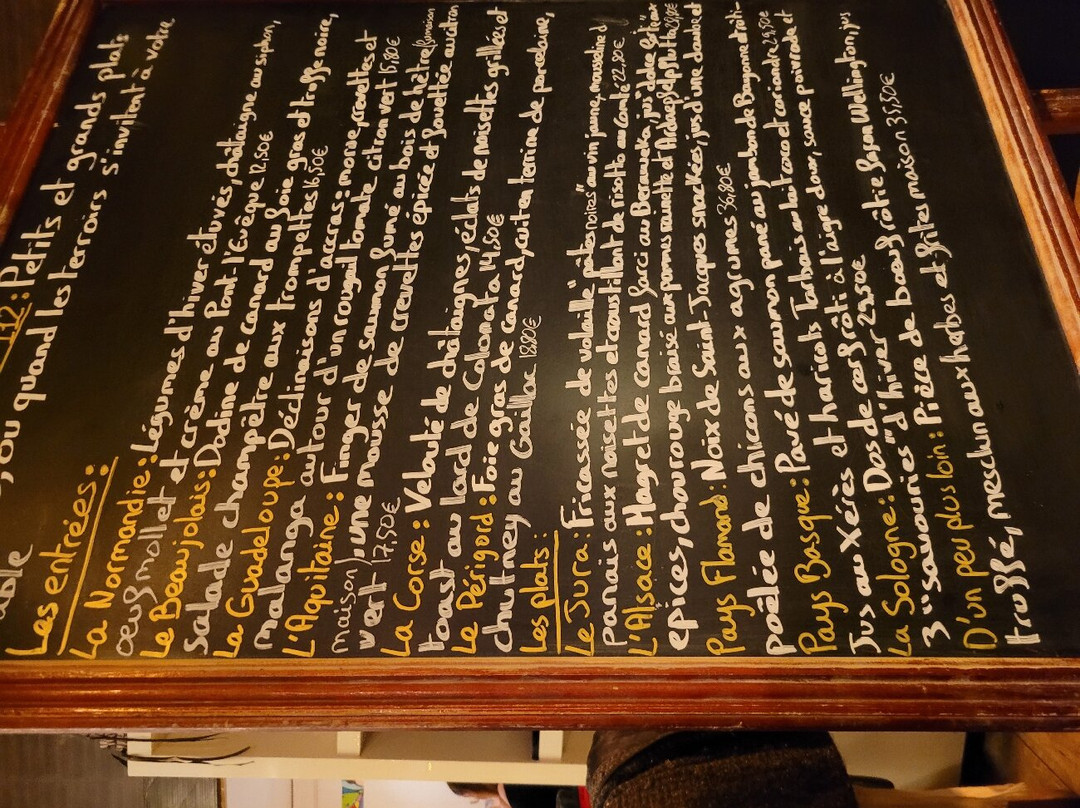 1.12: Petits et grands plats
, ou quand les terroirs s'invitent à votre
able
Les entrées:
La Normandie: Légumes d'hiver étuvés, châtaigne au siphon,
œuf mollet et crème au Pont-l'Evêque 12,50€
Le Beaujolais: Dodine de canard au foie gras et truffe noire,
salade champêtre aux trompettes 16,50€
La Guadeloupe: Déclinaisons d'accras: morue, crevettes et
malanga autour d'un rougail tomate citron vert 15,80€
L'Aquitaine: Finger de saumon fumé au bois de hêtre (fumaison
maison), une mousse de crevettes épicée et fouettée au citron
vert 17,50€
La Corse: Velouté de châtaignes, éclats de noisettes grillées et
toast au lard de Collonata 14,50€
Le Périgord: Foie gras de canard, cuit en terrine de porcelaine,
chutney au Gaillac 18,80€
Les plats:
Le Jura: Fricassée de volaille "pattes noires" au vin jaune, mousseline d
panais aux noisettes et croustillant de risotto au Comté 22,80€
L'Alsace: Magret de canard farci au Bermuka, jus "dolce forte" aux
épices, chou rouge braisé aux pommes reinette et
Pays Flamand: Noix de Saint-Jacques snackées, jus d'une daube et
poêlée de chicons aux agrumes 36,80€
Pays Basque: Pavé de saumon pané au jambon de Bayonne
Jus au Xérès et haricots Tarbais au lait coco et coriandre 24,50€
La Sologne: Dos de cerf rôti à l'aigre doux, sauce poivrade et
3 "saveurs" d'hiver 29,50€
D'un peu plus loin: Pièce de boeuf rôtie façon Wellington, jus
truffé, mesclun aux herbes et frites maison 35,50€